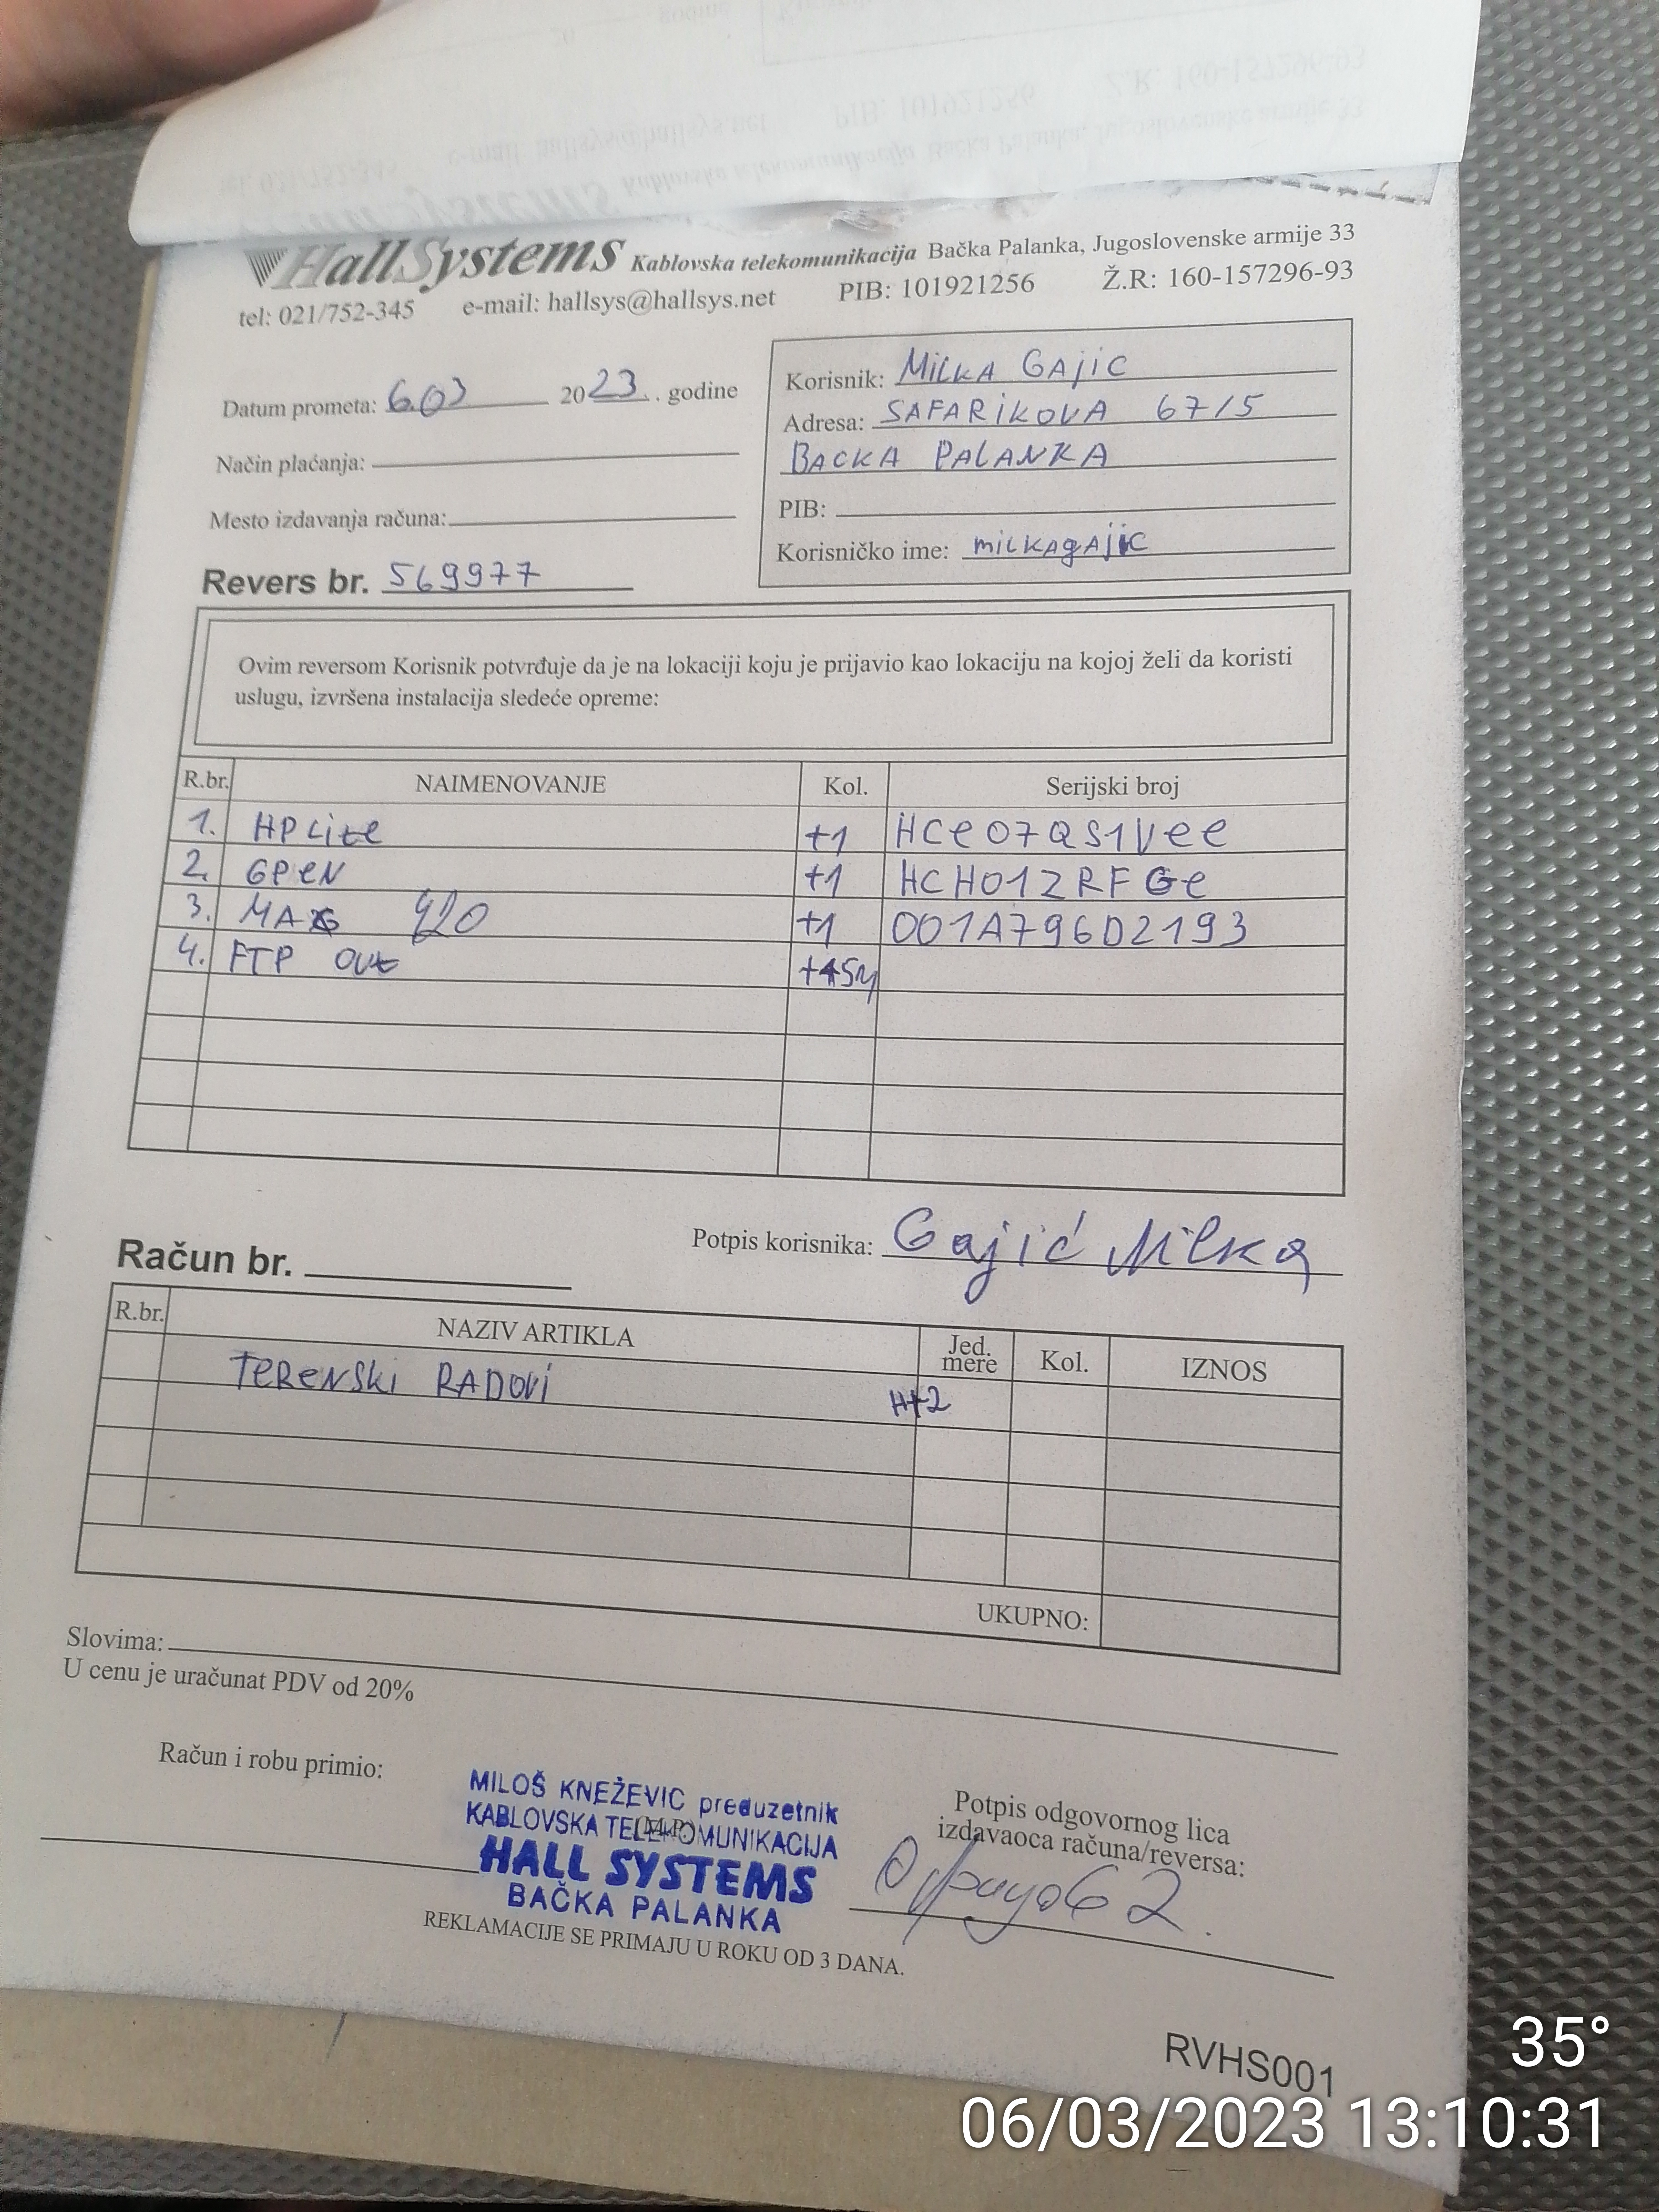 HallSystems Kablovska telekomunikacija Bačka Palanka, Jugoslovenske armije 33
tel: 021/752-345 e-mail: hallsys@hallsys.net PIB: 101921256 Ž.R: 160-157296-93
Datum prometa: 6.03 2023. godine
Način plaćanja:
Mesto izdavanja računa:
Revers br. 569977
Korisnik: MiLKA GAjiC
Adresa: SAFARiKOVA 67/5
BACKA PALANKA
PIB:
Korisničko ime: milkagajic
Ovim reversom Korisnik potvrđuje da je na lokaciji koju je prijavio kao lokaciju na kojoj želi da koristi
uslugu, izvršena instalacija sledeće opreme:
R.br. NAIMENOVANJE Kol. Serijski broj
1. HP Lite +1 HCE07QS1VEE
2. GPEN +1 HCH01ZRFGE
3. MAG 420 +1 001A796D2193
4. FTP OUT +45m
Potpis korisnika: Gajić Milka
Račun br.
R.br. NAZIV ARTIKLA Jed. mere Kol. IZNOS
TERENSKI RADOVI H+2
UKUPNO:
Slovima:
U cenu je uračunat PDV od 20%
Račun i robu primio:
MILOŠ KNEŽEVIC preduzetnik
KABLOVSKA TELEKOMUNIKACIJA
(M.P.)
HALL SYSTEMS
BAČKA PALANKA
Potpis odgovornog lica
izdavaoca računa/reversa:
REKLAMACIJE SE PRIMAJU U ROKU OD 3 DANA.
RVHS001
35°
06/03/2023 13:10:31